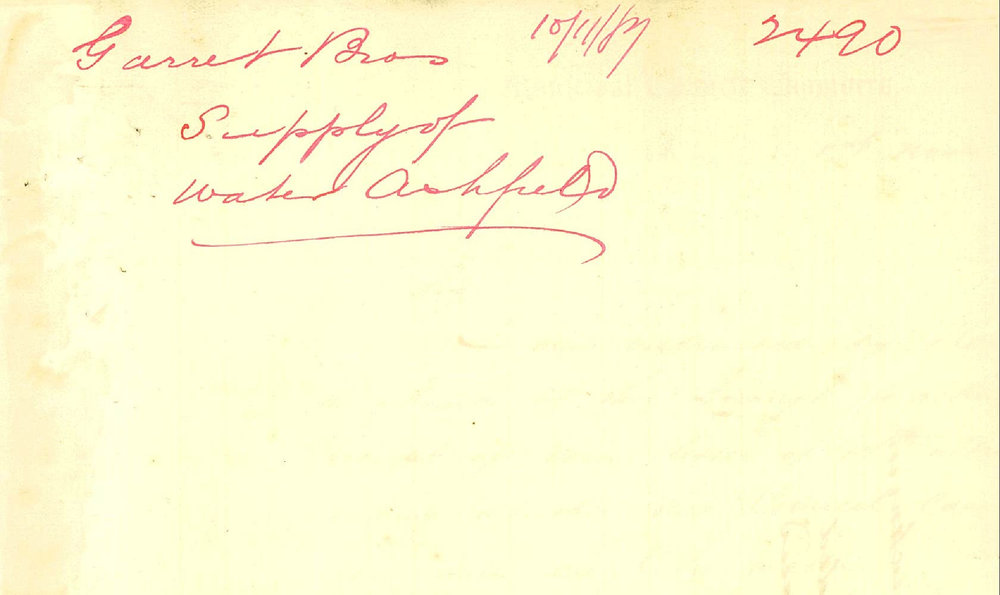 Garret Bros 10/11/87 2490
Supply of
water Ashfield